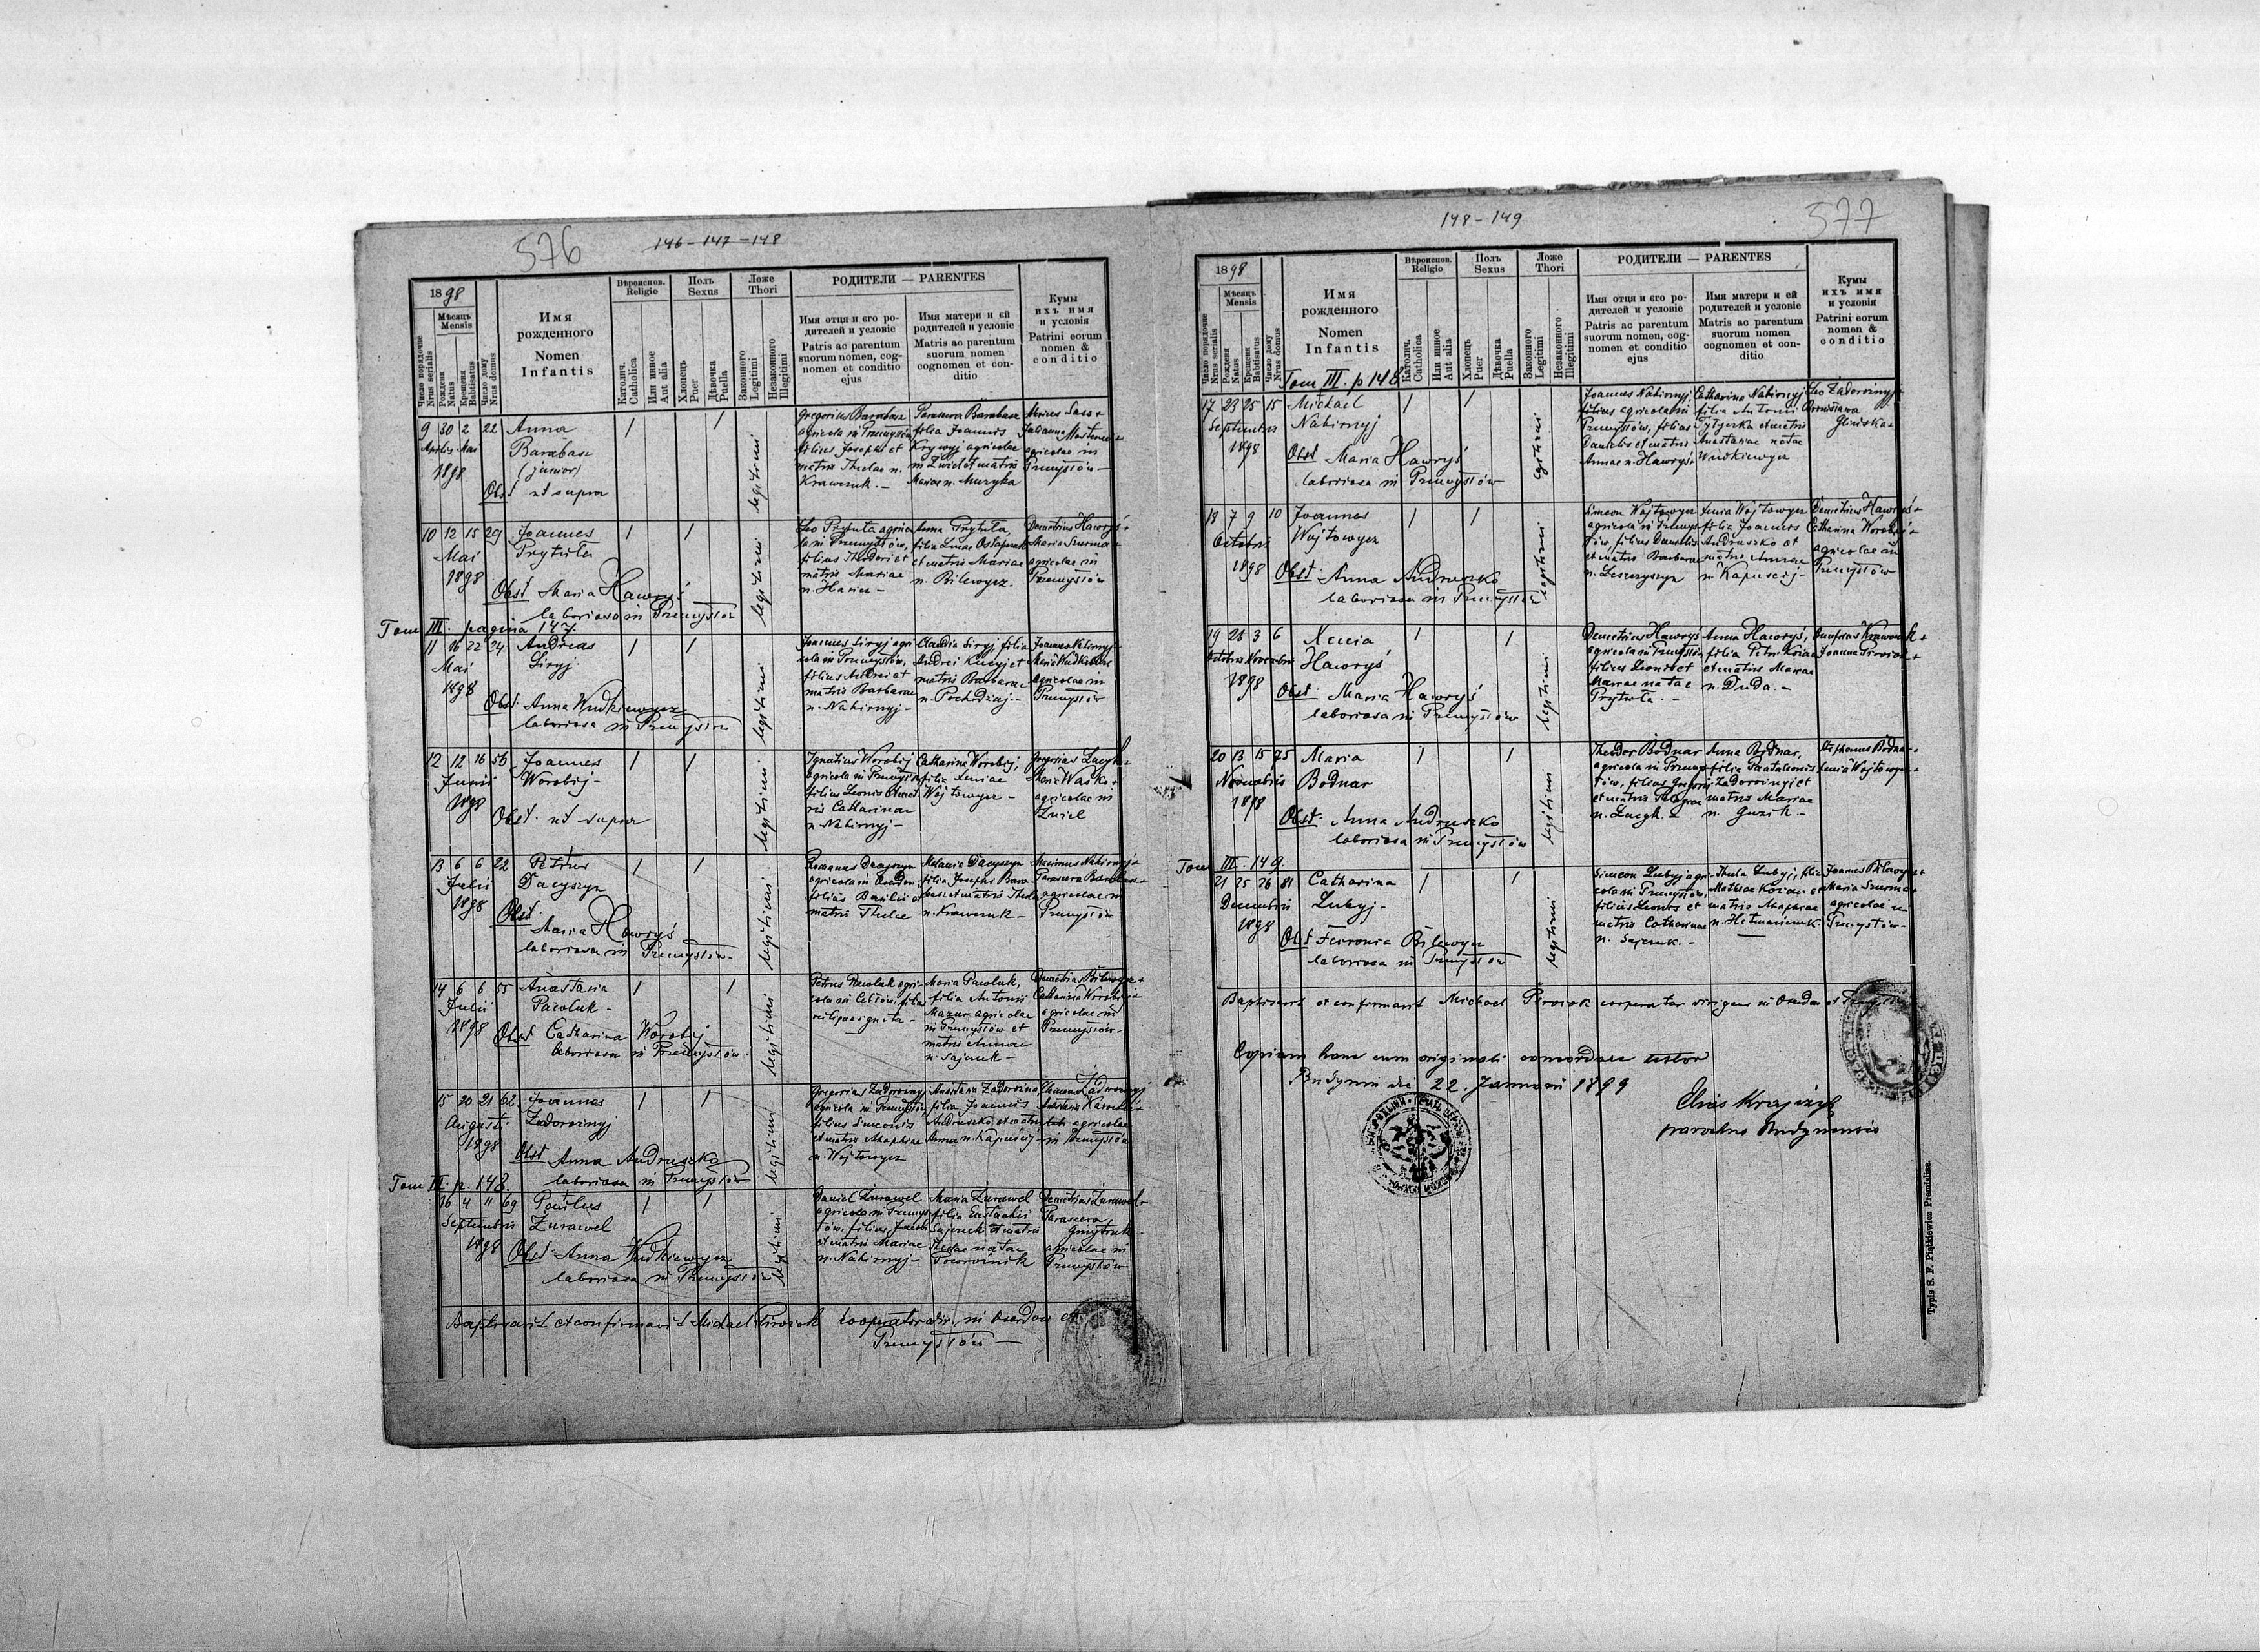 576
146-147-148
1898
Мѣсяць
Mensis
Число порядочне
Nrus serialis
Рожденя
Natus
Крещеня
Babtisatus
Число дому
Nrus domus
Имя
рожденного
Nomen
Infantis
Вѣроиспов.
Religio
Католич.
Catholica
Или инное
Aut alia
Полъ
Sexus
Хлопець
Puer
Дѣвочка
Puella
Ложе
Thori
Законного
Legitimi
Незаконного
Illegitimi
РОДИТЕЛИ — PARENTES
Имя отця и єго ро-
дителей и условіє
Patris ac parentum
suorum nomen, cog-
nomen et conditio
ejus
Имя матери и єй
родителей и условіє
Matris ac parentum
suorum nomen
cognomen et con-
ditio
Кумы
ихъ имя
и условія
Patrini eorum
nomen &
conditio
9 30 2 22 Anna
Aprilis Mai Barabasz
1898 (junior)
Obst ut supra
legitimi
Gregorius Barabasz
agricola in Przemysłów
filius Josephi et
matris Theclae n.
Krawczuk.-
Parasceva Barabasz
filia Joannis
Krywyj agricolae
in Żwiel et matris
Mariae n. Muzyka
agricolae in
Przemysłów -
10 12 15 29 Joannes
Mai Prytuła
1898
Obst Maria Hawryś
laboriosa in Przemysłów
legitimi
Leo Prytuła agrico-
la in Przemysłów,
filius Theodori et
matris Mariae
Anna Prytuła,
filia Lucae Ostapczuk
et matris Mariae
n. Bilewycz.
Demetrius Hawryś +
agricolae in
Przemysłów
Tom III. pagina 147.
11 16 22 24 Andreas
Mai Siryj
1898
Obst. Anna Wudkiewycz
laboriosa in Przemysłów
legitimi
Joannes Siryj agri-
cola in Przemysłów,
filius Andrei et
matris Barbarae
n. Nahirnyj -
Claudia Siryj filia
Andrei Kucyj et
matris Barbarae
Joannes Nahirnyj
agricolae in
Przemysłów
12 12 16 56 Joannes
Junii Worobij -
1898
Obst. ut supra
legitimi
Ignatius Worobij
agricola in Przemysłów
filius Leonis et mat-
ris Catharinae
n. Nahirnyj -
Catharina Worobij,
filia Xeniae
Wojtowycz -
agricolae in
Żwiel
13 6 6 22 Petrus
Julii Dacyszyn
1898 Obst.
Maria Hawryś
laboriosa in Przemysłów -
legitimi
Romanus Dacyszyn
agricola in Oserdow
filius Basilii et
matris Theclae
Melania Dacyszyn
filia Josephi Bara-
basz et matris Theclae
n. Krawczuk -
Maximus Nahirnyj +
Parasceva Barabasz +
agricolae in
Przemysłów
14 6 6 55 Anastasia
Julii Pawluk -
1898 Obst Catharina Worobij
laboriosa in Przemysłów -
legitimi
Maria Pawluk,
filia Antonii
Mazur agricolae
in Przemysłów et
matris Annae
n. Sajczuk -
Demetrius Bilewycz +
Catharina Worobij +
agricolae in
Przemysłów -
15 20 21 62 Joannes
Augusti Zadorożnyj
1898 Obst Anna Andruszko
laboriosa in Przemysłów
legitimi
Gregorius Zadorożnyj
agricola in Przemysłów
filius Simeonis
et matris Agaphiae
n. Wojtowycz
filia Joannis
Andruszko et matris
Annae n. Kapuścij -
agricolae
in Przemysłów
Tom III. p. 148.
16 4 11 69 Paulus
Septembris Żurawel
1898 Obst. Anna Wudkiewycz
laboriosa in Przemysłów
legitimi
Daniel Żurawel
agricola in Przemys-
łów, filius Jacobi
et matris Mariae
n. Nahirnyj -
Maria Żurawel
filia Eustachii
Sajczuk et matris
Theclae natae
Demetrius Żurawel +
Parasceva
agricolae in
Przemysłów
Baptisavit et confirmavit Michael Pirożok cooperator dir. in Oserdow et
Przemysłów —
577
148-149
1898
Мѣсяць
Mensis
Число порядочне
Nrus serialis
Рожденя
Natus
Крещеня
Babtisatus
Число дому
Nrus domus
Имя
рожденного
Nomen
Infantis
Вѣроиспов.
Religio
Католич.
Catholica
Или инное
Aut alia
Полъ
Sexus
Хлопець
Puer
Дѣвочка
Puella
Ложе
Thori
Законного
Legitimi
Незаконного
Illegitimi
РОДИТЕЛИ — PARENTES
Имя отця и єго ро-
дителей и условіє
Patris ac parentum
suorum nomen, cog-
nomen et conditio
ejus
Имя матери и єй
родителей и условіє
Matris ac parentum
suorum nomen
cognomen et con-
ditio
Кумы
ихъ имя
и условія
Patrini eorum
nomen &
conditio
Tom III. p 148
17 23 25 15 Michael
Septembris Nahirnyj
1898 Obst Maria Hawryś
laboriosa in Przemysłów
legitimi
Joannes Nahirnyj,
filius agricolae in
Przemysłów, filius
Danielis et matris
Annae n. Hawryś
Catharina Nahirnyj
filia Antonii
et matris
Anastasiae natae
Wudkiewycz
Leo Zadorożnyj
18 7 9 10 Joannes
Octobris Wojtowycz
1898 Obst. Anna Andruszko
laboriosa in Przemysłów
legitimi
Simeon Wojtowycz
agricola in Przemys-
łów filius Danielis
et matris Barbarae
n. Leszczyszyn
Xenia Wojtowycz
filia Joannis
Andruszko et
matris Annae
n. Kapuscij -
Demetrius Hawryś +
Catharina Worobij +
agricolae in
Przemysłów
19 28 3 6 Xenia
Octobris Novembris Hawryś
1898 Obst. Maria Hawryś
laboriosa in Przemysłów
legitimi
Demetrius Hawryś
agricola in Przemysłów
filius Leonis et
Mariae natae
Prytuła. -
Anna Hawryś,
filia Petri Koziar
et matris Mariae
n. Duda. -
Onufrius Krawczuk +
Joanna Pirożok +
20 13 15 75 Maria
Novembris Bodnar
1898 Obst. Anna Andruszko
laboriosa in Przemysłów
legitimi
Theodor Bodnar
agricola in Przemys-
łów, filius Gregorii
Anna Bodnar,
filia Pantaleonis
Zadorożnyj et
matris Mariae
n. Guzik -
Stephanus Bodnar +
Xenia Wojtowycz +
Tom III. 149.
21 25 26 81 Catharina
Decembris Lubyj -
1898 Obst Fevronia Bilewycz
laboriosa in Przemysłów
legitimi
Simeon Lubyj agri-
cola in Przemysłów,
filius Leonis et
matris Catharinae
n. Sajczuk. -
Thecla Lubyj, filia
Mathiae Koziar et
matris Agaphiae
Joannes Bilewycz +
agricolae in
Przemysłów -
Baptisavit et confirmavit Michael Pirożok cooperator dirigens in Oserdow et
Copiam hanc cum originali concordare testor
Budynin die 22. Januarii 1899
Elias Krajczyk
parochus Budynensis
Typis S. F. Piątkiewicz Premisliae.